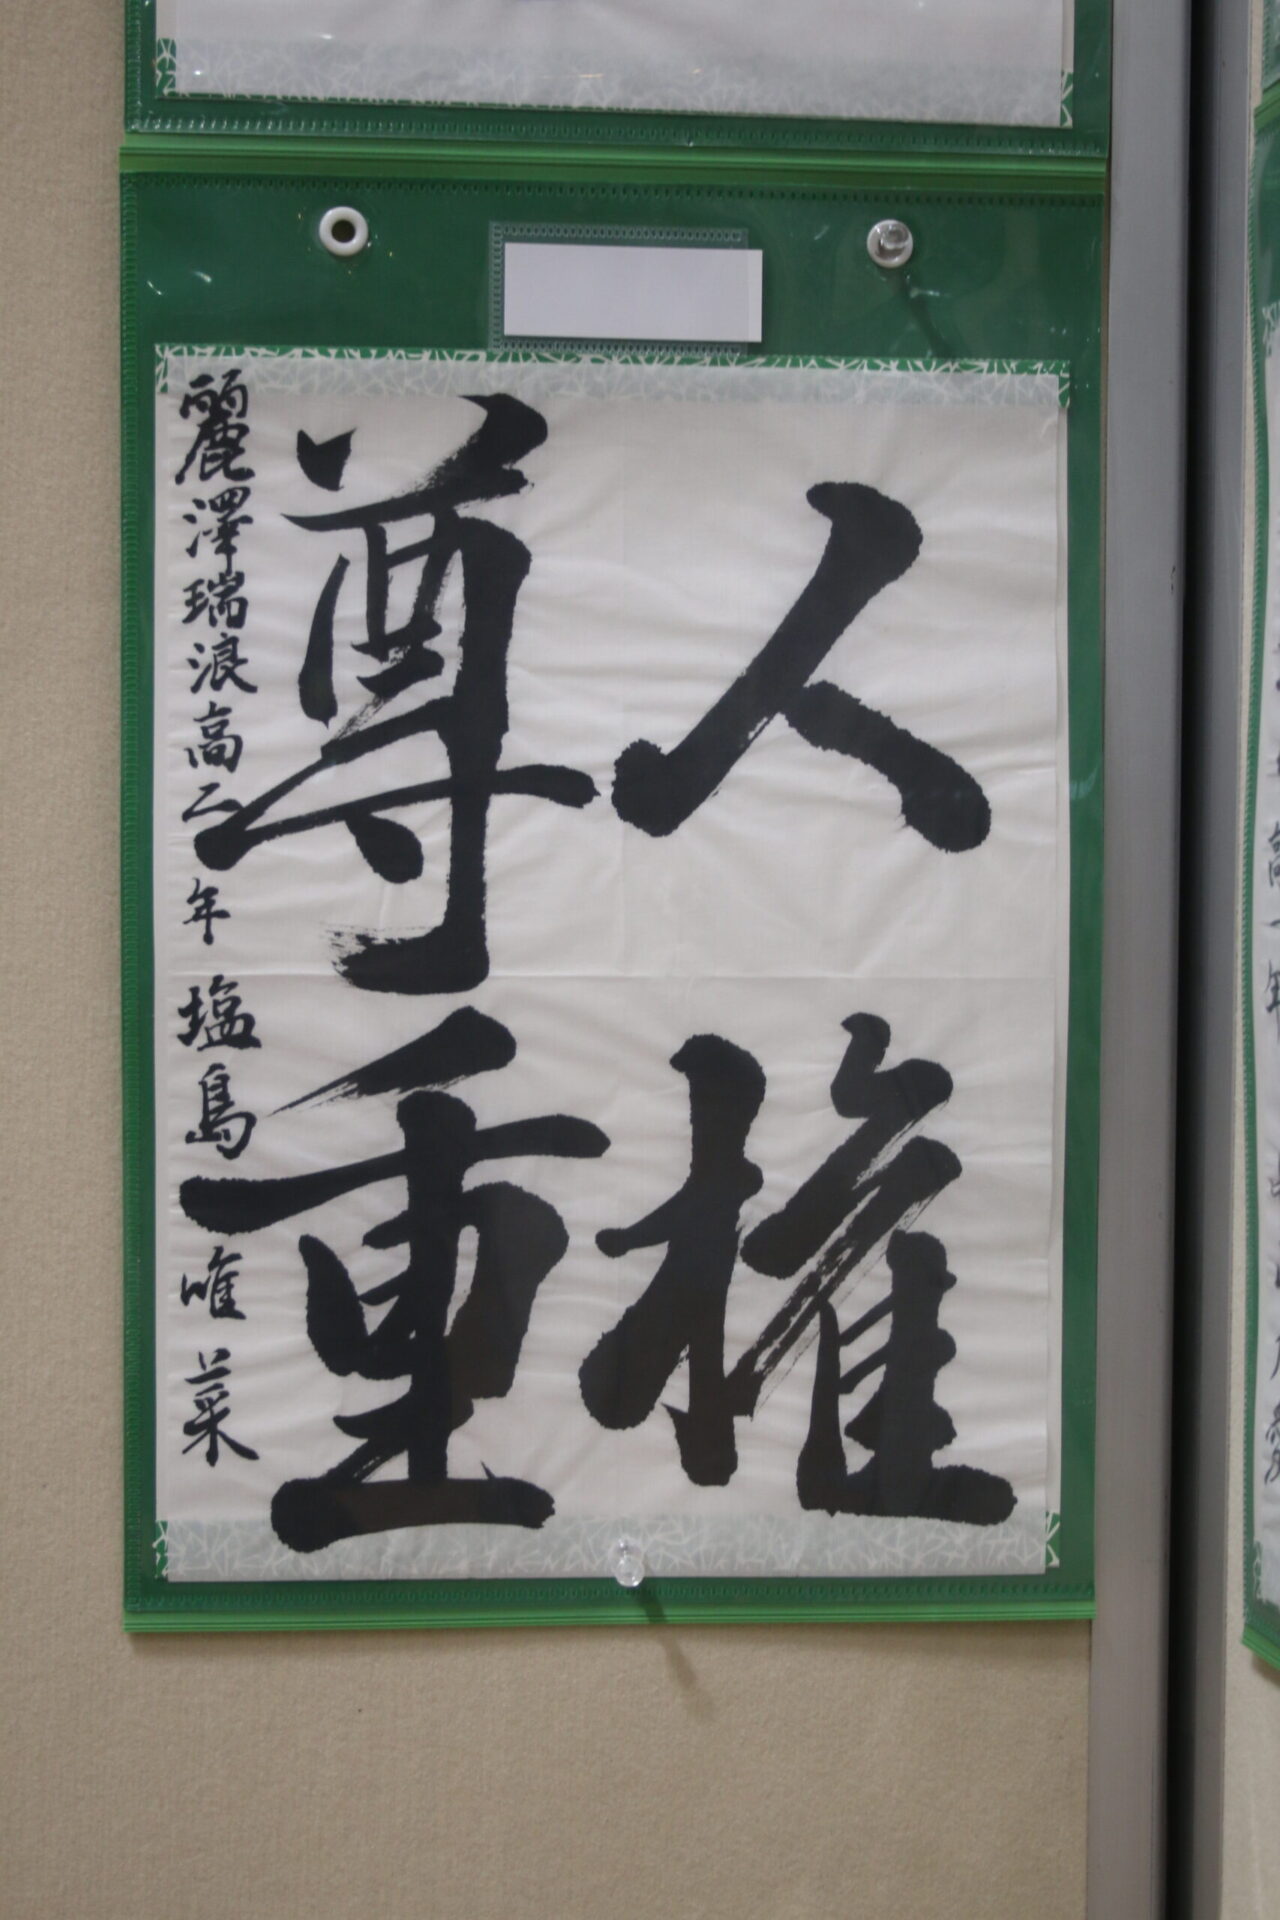 人権
尊重
麗澤瑞浪高二年 塩島唯菜